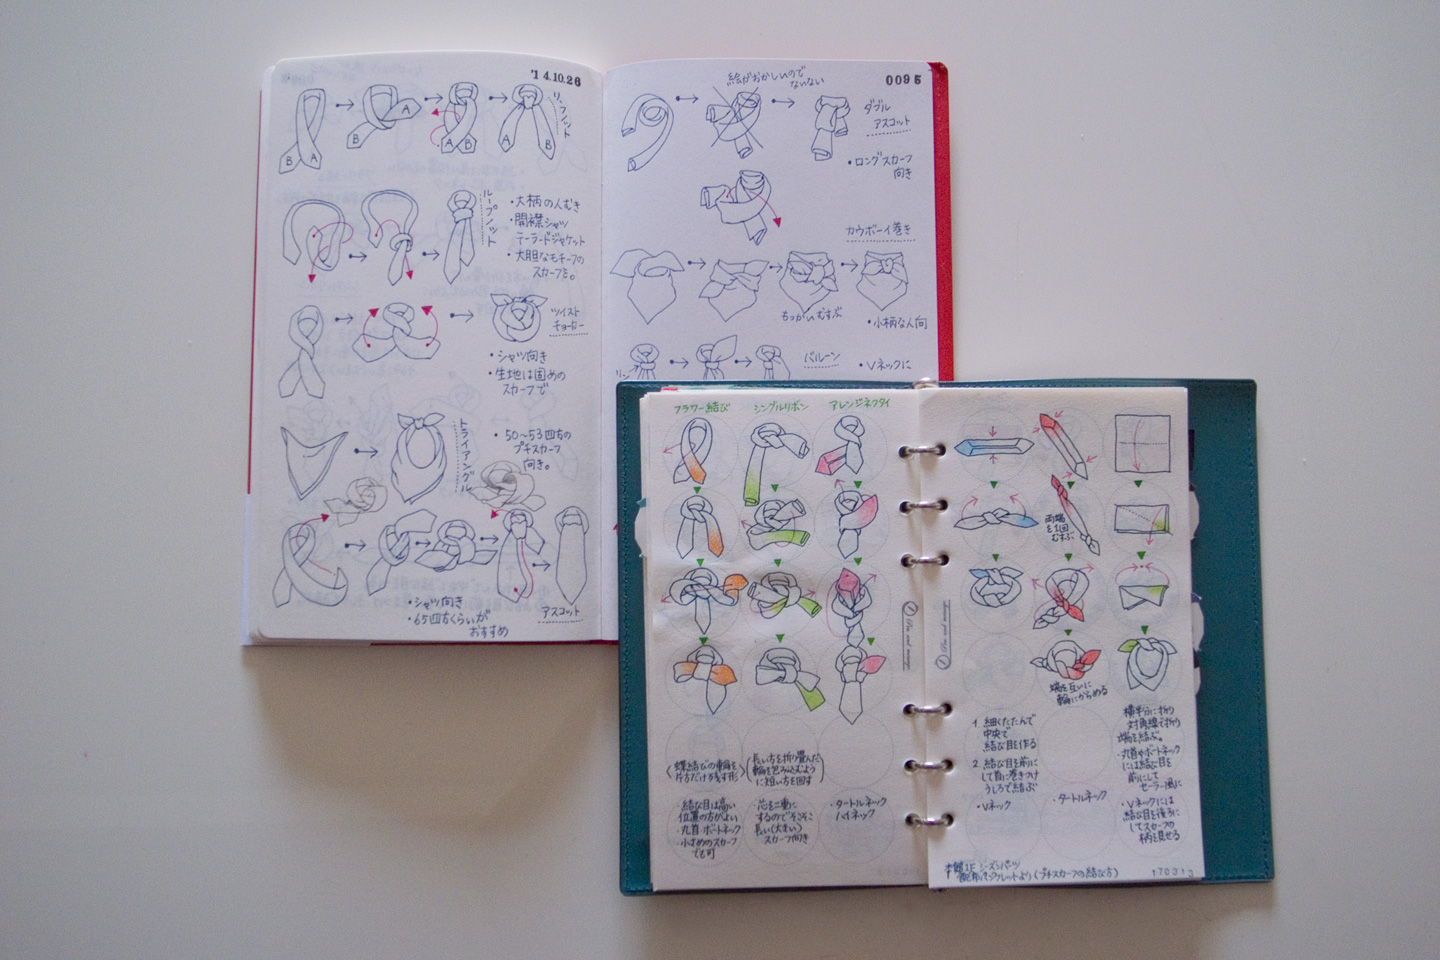 '14.10.26
A
B A
B
A B
A
B
リングノット
ループノット
・大柄の人むき
・開襟シャツ
テーラードジャケット
・大胆なモチーフの
スカーフを。
ツイスト
チョーカー
・シャツ向き
・生地は固めの
スカーフで
トライアングル
・50〜53四方の
プチスカーフ
向き。
・シャツ向き
・65四方くらいが
おすすめ
アスコット
絵がおかしいので
ないない
0095
ダブル
アスコット
・ロングスカーフ
向き
カウボーイ巻き
もっかいむすぶ
・小柄な人向
バルーン
・Vネックに
フラワー結び
シングルリボン
アレンジネクタイ
(蝶結びの輪を
片方だけ残す形)
(長い方を折り畳んだ
輪を包み込むよう
に短い方を回す)
・結び目は高い
位置の方がよい
・丸首・ボートネック
・小さめのスカーフ
でも可
・芯を二重に
するのでそこそこ
長い(大きい)
スカーフ向き
・タートルネック
ハイネック
両端
を1回
むすぶ
端を互いに
輪にからめる
1. 細くたたんで
中央で
結び目を作る
2. 結び目を前に
して首に巻きつけ
うしろで結ぶ
・Vネック
・タートルネック
横半分に折り
対角線で折り
端を結ぶ。
・丸首やボートネック
には結び目を
前にして
セーラー風に
・Vネックには
結び目を後ろに
してスカーフの
柄を見せる
(プチスカーフの結び方)
170313